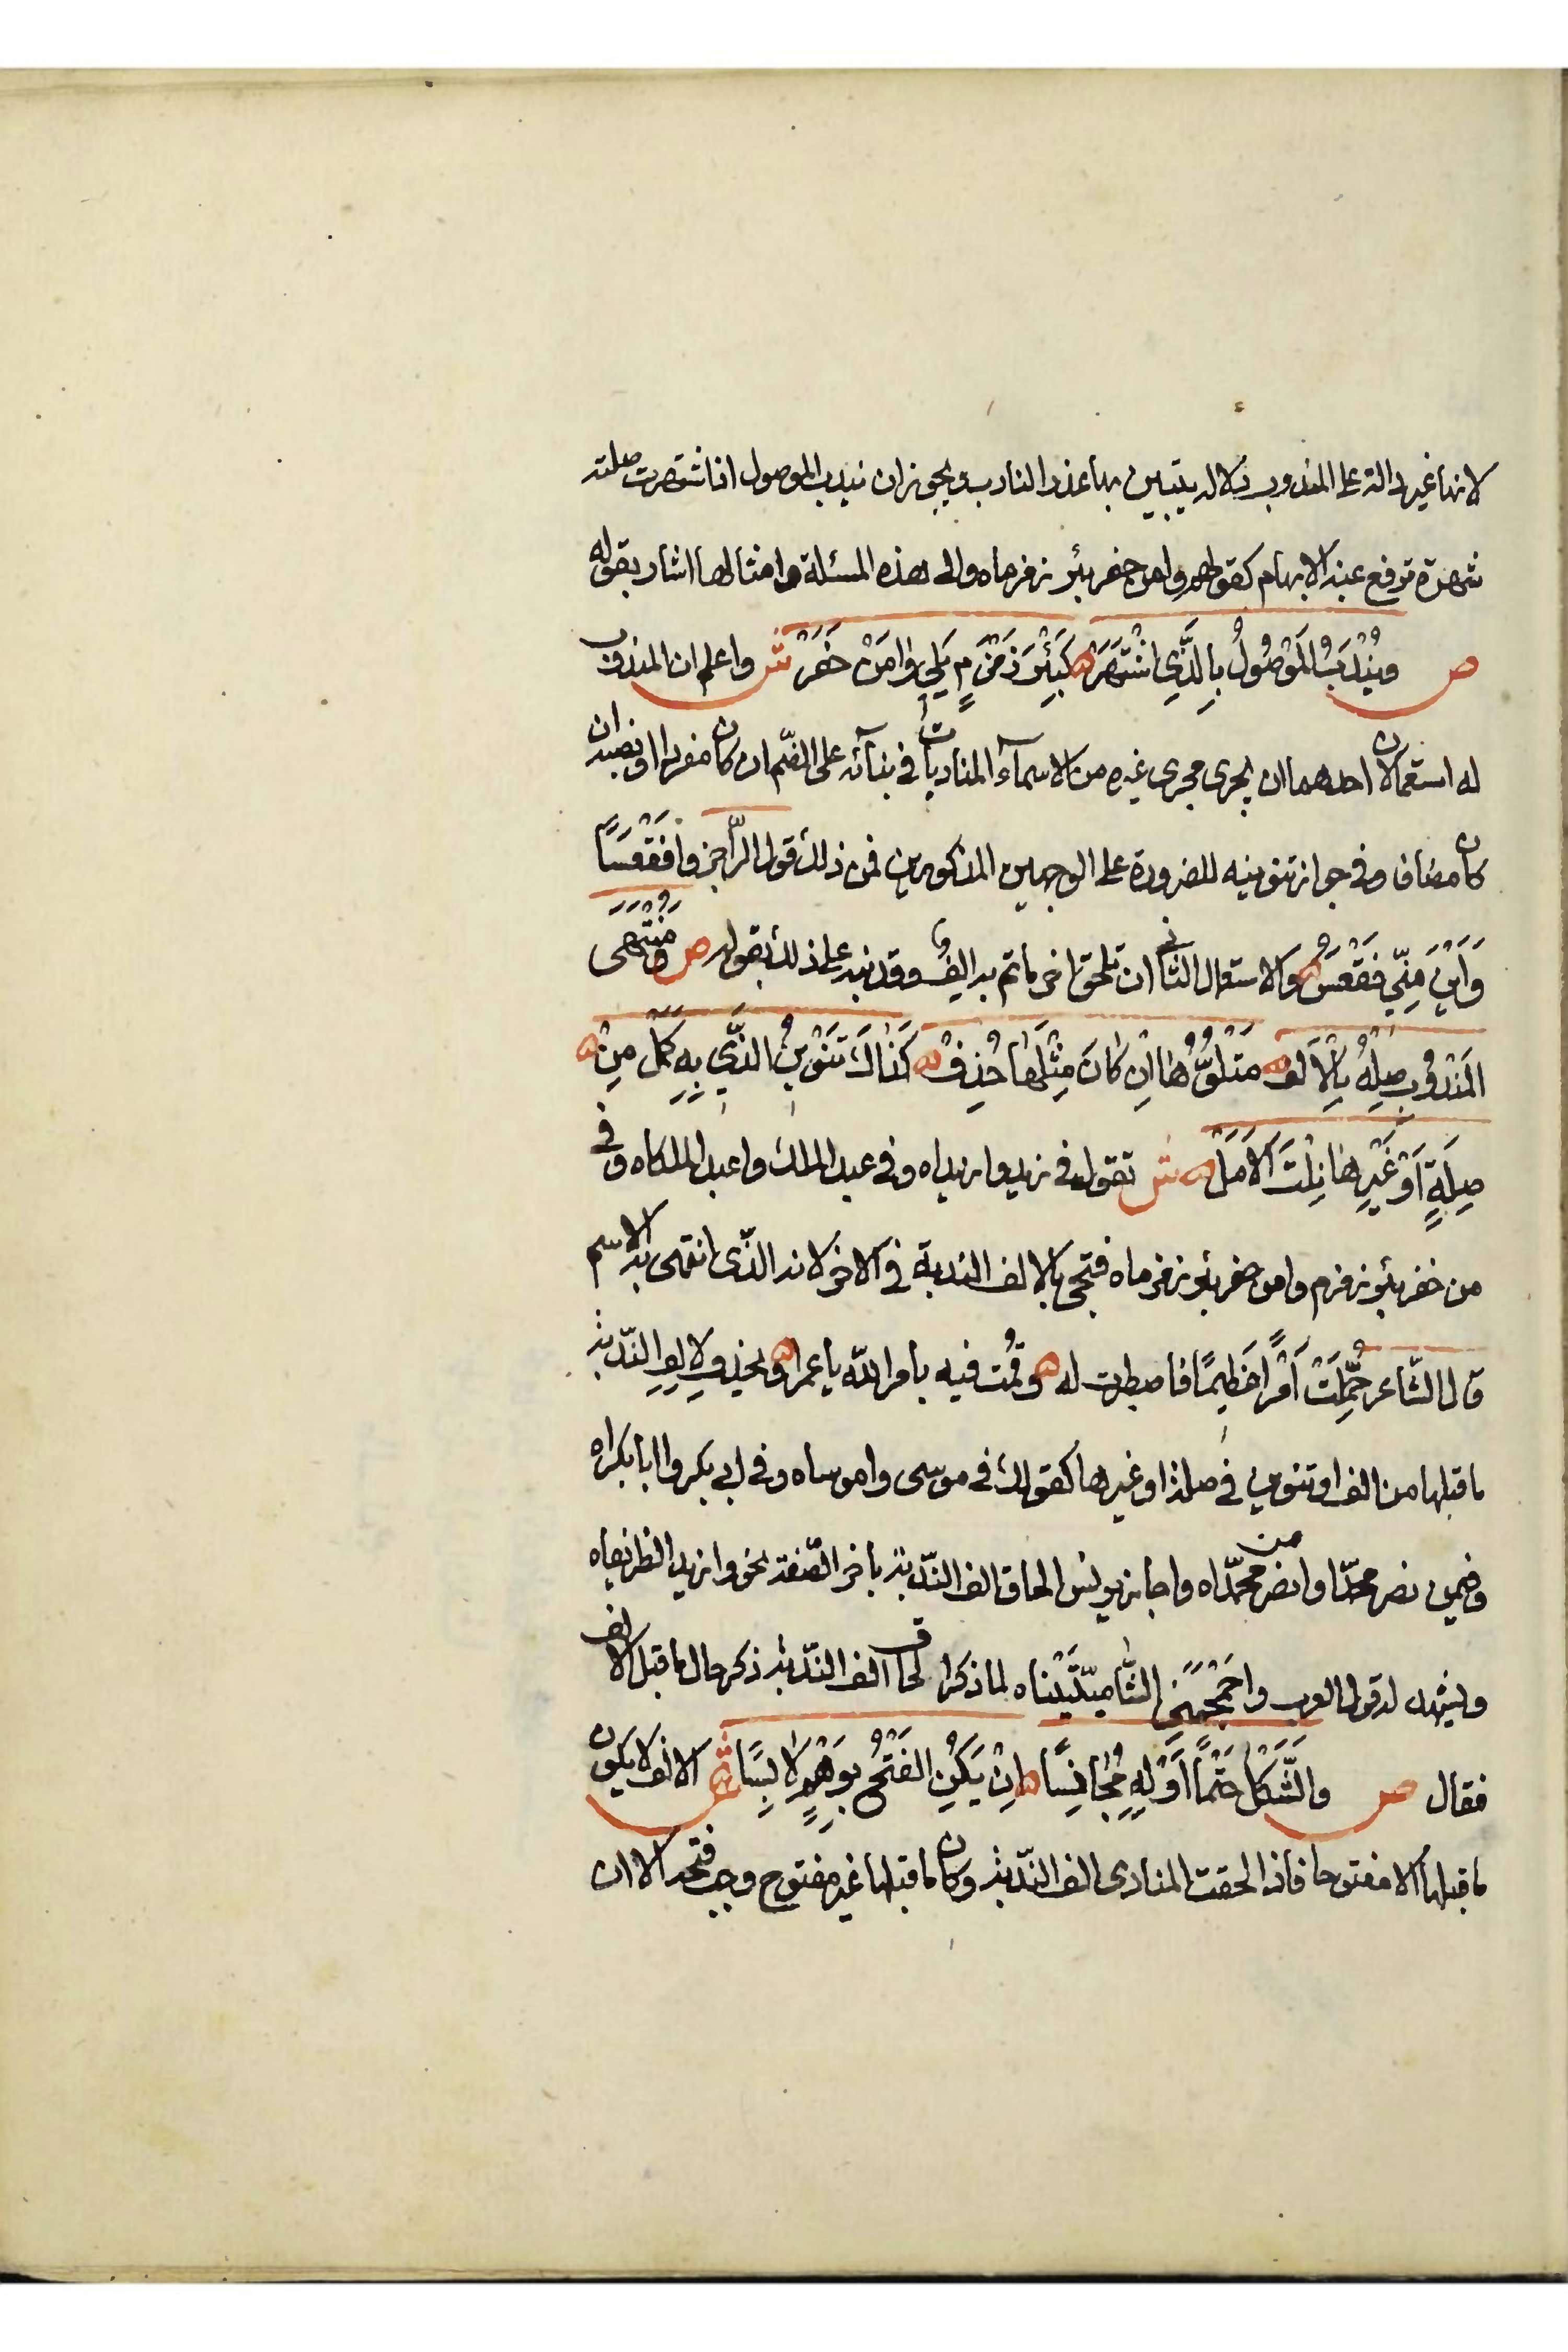 لانها غير دالة على المندوب دلالة يتبين بها عذر النادب ويجوز ان يندب الموصول اذا اشتهرت صلته
شهرة ترفع عنه الابهام كقولهم وامن حفر بئر زمزماه والى هذه المسئلة وامثالها اشار بقوله
ص وَيُنْدَبُ المَوْصُولُ بِالَّذِي اشْتَهَرَ ه كَبِئْرَ زَمْزَمٍ يَلِي وَامَنْ حَفَرَ ش واعلم ان المندوب
له استعمالان احدهما ان يجرى مجرى غيره من الاسمآء المناديات فى بنآئه على الضّم ان كان مفردا او نصبه ان
كان مضاف وفى جواز تنوينه للضرورة على الوجهين المذكورين فمن ذلك قول الرّاجز وافَقْعَسًا
وَاَيْنَ مِنِّي فَقْعَسُ ه والاستعمال الثانى ان تلحق اخر ما تم به الف وقد نبه على ذلك بقوله ص وَمُنْتَهَى
المَنْدُوبِ صِلْهُ بِالْاَلِف ه مَتْلُوُّهَا اِن كَانَ مِثْلَهَا حُذِفْ ه كَذَاكَ تَنْوِينُ الَّذِي بِهِ كَمَل مِنْ ه
صِلَةٍ اَوْ غَيْرِهَا نِلْتَ الاَمَلْ ه ش تقول فى زيد وا زيداه وفى عبد الملك واعبد الملكاه وفى
من حفر بئر زمزم وامن حفر بئر زمزماه فتجى بالالف الندبة فى الاخر لانه الذّى انتهى به الاسم
قال الشّاعر حُمِّلَتْ اَمْرًا عَظِيمًا فاصطبرت له ه وقُمت فيه بامر الله يا عمرا ه ويحذف لالِفِ النّدبة
ما قبلها من الف او تنوين فى صلة او غيرها كقولك فى موسى واموساه وفى ابى بكر وا ابا بكراه
وفيمن نصر محمّدا وامن نصر محمّداه واجاز يونس الحاق الف النّدبة باخر الصّفة نحو وا زيد الظريفاه
ويشهد له قول العرب واجُمْجُمَتَيِ الشَّاميّتَيْناه لما ذكر الحاق الف النّدبة ذكر حال ما قبل الالف
فقال ص والشَّكْلَ حَتْمًا اَوْلِهِ مُجَانِسًا ه اِنْ يَكُنِ الفَتْحُ بِوَهْمٍ لَابِسًا ش الالف لا يكون
ما قبلها الا مفتوحا فاذا الحقت المنادى الف النّدبة وكان ما قبلها غير مفتوح وجب فتحه الا ان